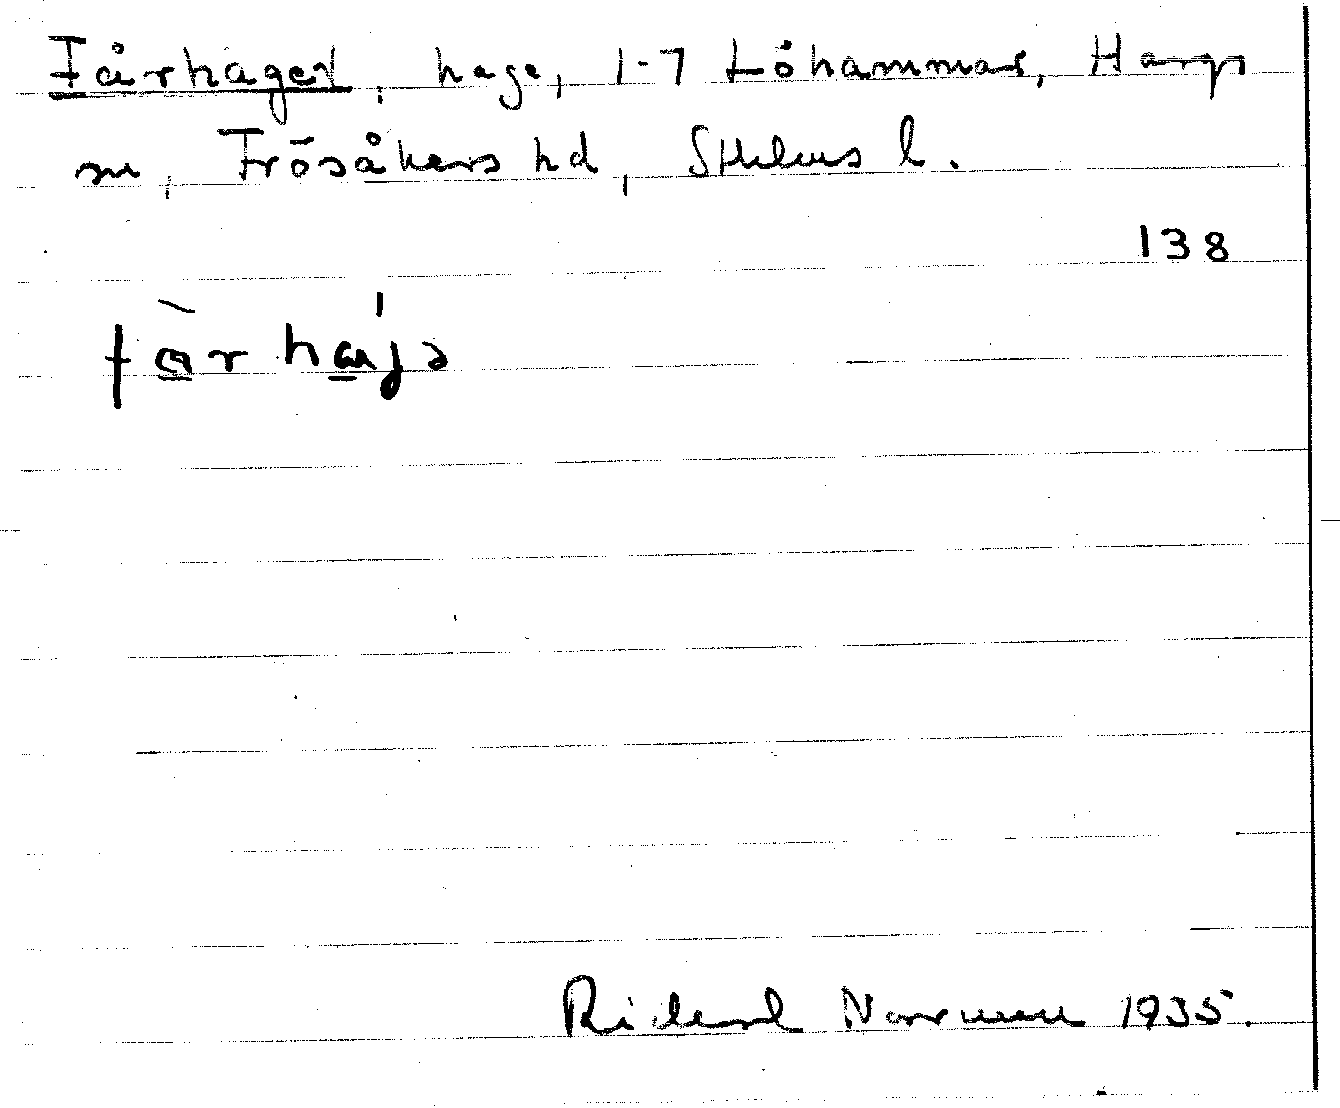 Fårhagen, hage, 1-7 Löhammar, Hargs
sn, Frösåkers hd, Sthlms l.
138
fàrhájə
Rickard Norrman 1935.